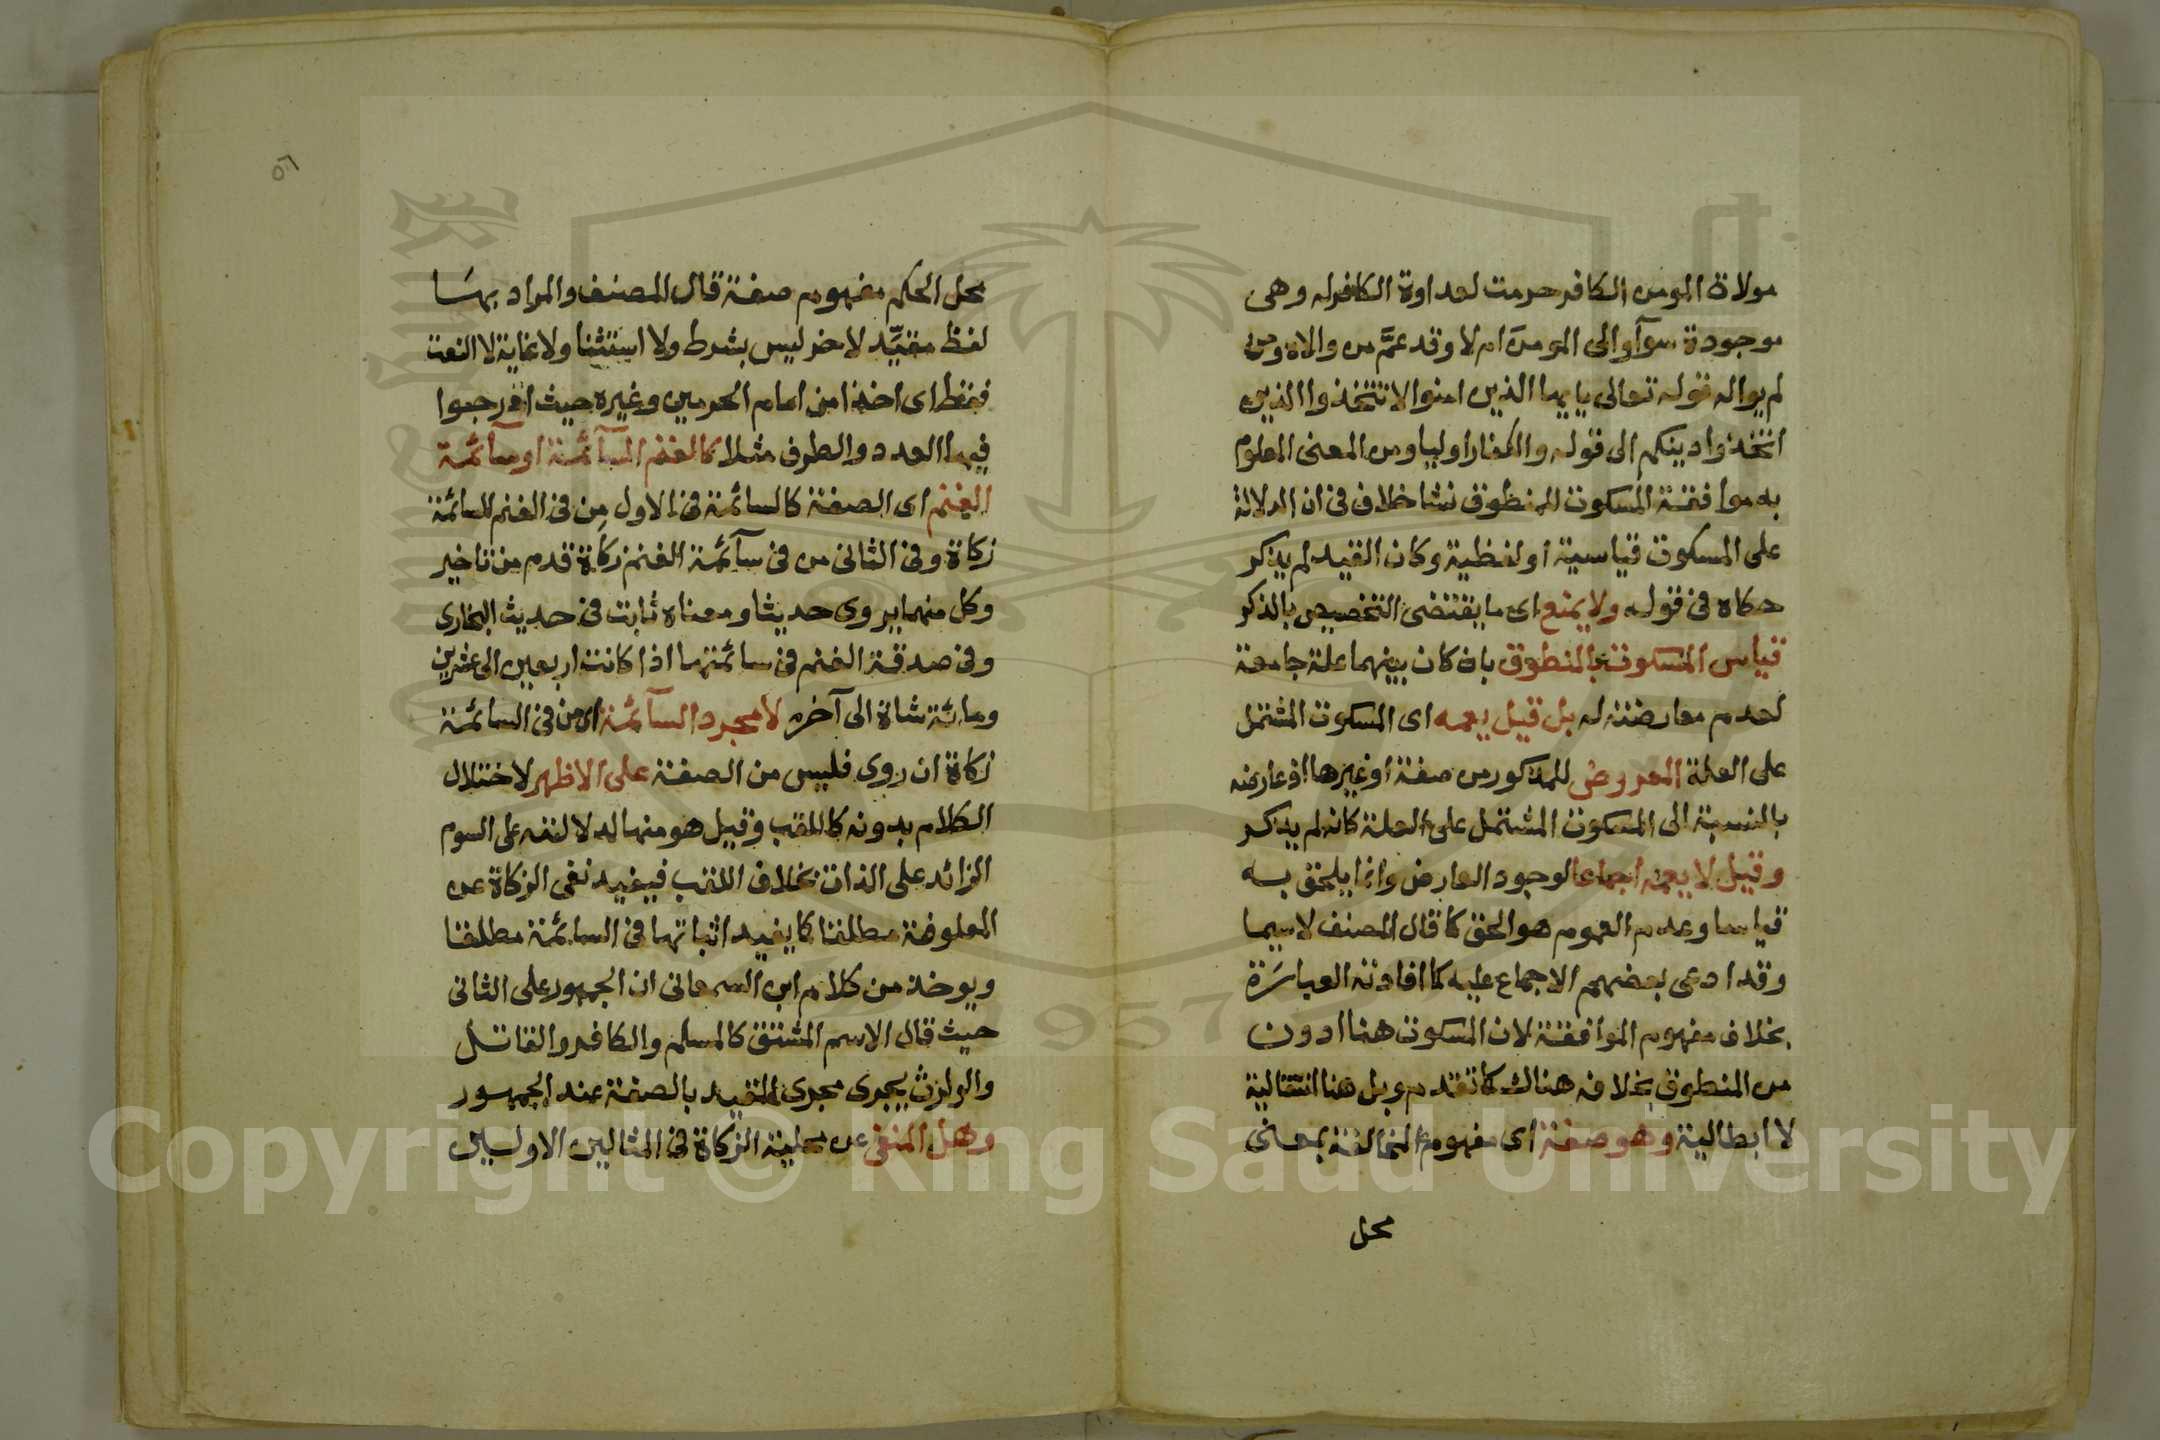 مولاة المومن الكافر حرمت لعداوة الكافر له وهى
موجودة سوآ والى المومن ام لا وقد عمّ من والاه ومن
لم يواله قوله تعالى يايها الذين امنوا لا تتخذوا الذين
اتخذوا دينكم الى قوله والكفار اوليا ومن المعنى المعلوم
به موافقة المسكوت للمنطوق نشا خلاف فى ان الدلالة
على المسكوت قياسية او لفظية وكان القيد لم يذكر
حكاه فى قوله ولا يمنع اى ما يقتضى التخصيص بالذكر
قياس المسكوت بالمنطوق بان كان بينهما علة جامعة
لعدم معارضته له بل قيل يعمه اى المسكوت المشتمل
على العلة المعروض للمذكور من صفة او غيرها اذ عارضه
بالنسبة الى المسكوت المشتمل على العلة كانه لم يذكر
وقيل لا يعمه اجماعا لوجود العارض وانما يلحق به
قياسا وعدم العموم هو الحق كما قال المصنف لا سيما
وقد ادعى بعضهم الاجماع عليه كما افادته العبارة
بخلاف مفهوم الموافقة لان المسكوت هنا ادون
من المنطوق بخلافه هناك كما تقدم وبل هنا انتقالية
لا ابطالية وهو صفة اى مفهوم المخالفة بمعنى
محل
٥٦
محل الحكم مفهوم صفة قال المصنف والمراد بها
لفظ مقيّد لاخر ليس بشرط ولا استثنا ولا غاية لا النعت
فقط اى اخذا من امام الحرمين وغيره حيث ادرجوا
فيها العدد والظرف مثلا كالغنم السآئمة او سآئمة
الغنم اى الصفة كالسائمة فى الاول مِن فى الغنم السائمة
زكاة وفى الثانى من فى سآئمة الغنم زكاة قدم من تاخير
وكل منهما يروى حديثا ومعناه ثابت فى حديث البخارى
وفى صدقة الغنم فى سائمتها اذا كانت اربعين الى عشرين
ومائة شاة الى آخره لا مجرد السآئمة اى من فى السائمة
زكاة ان روى فليس من الصفة على الاظهر لاختلال
الكلام بدونه كاللقب وقيل هو منها لدلالته على السوم
الزائد على الذات بخلاف اللقب فيفيد نفى الزكاة عن
المعلوفة مطلقا كما يفيد اثباتها فى السائمة مطلقا
ويوخذ من كلام ابن السمعانى ان الجمهور على الثانى
حيث قال الاسم المشتق كالمسلم والكافر والقاتل
والوارث يجرى مجرى المقيد بالصفة عند الجمهور
وهل المنفى عن محلية الزكاة فى المثالين الاولين
Copyright © King Saud University
1957